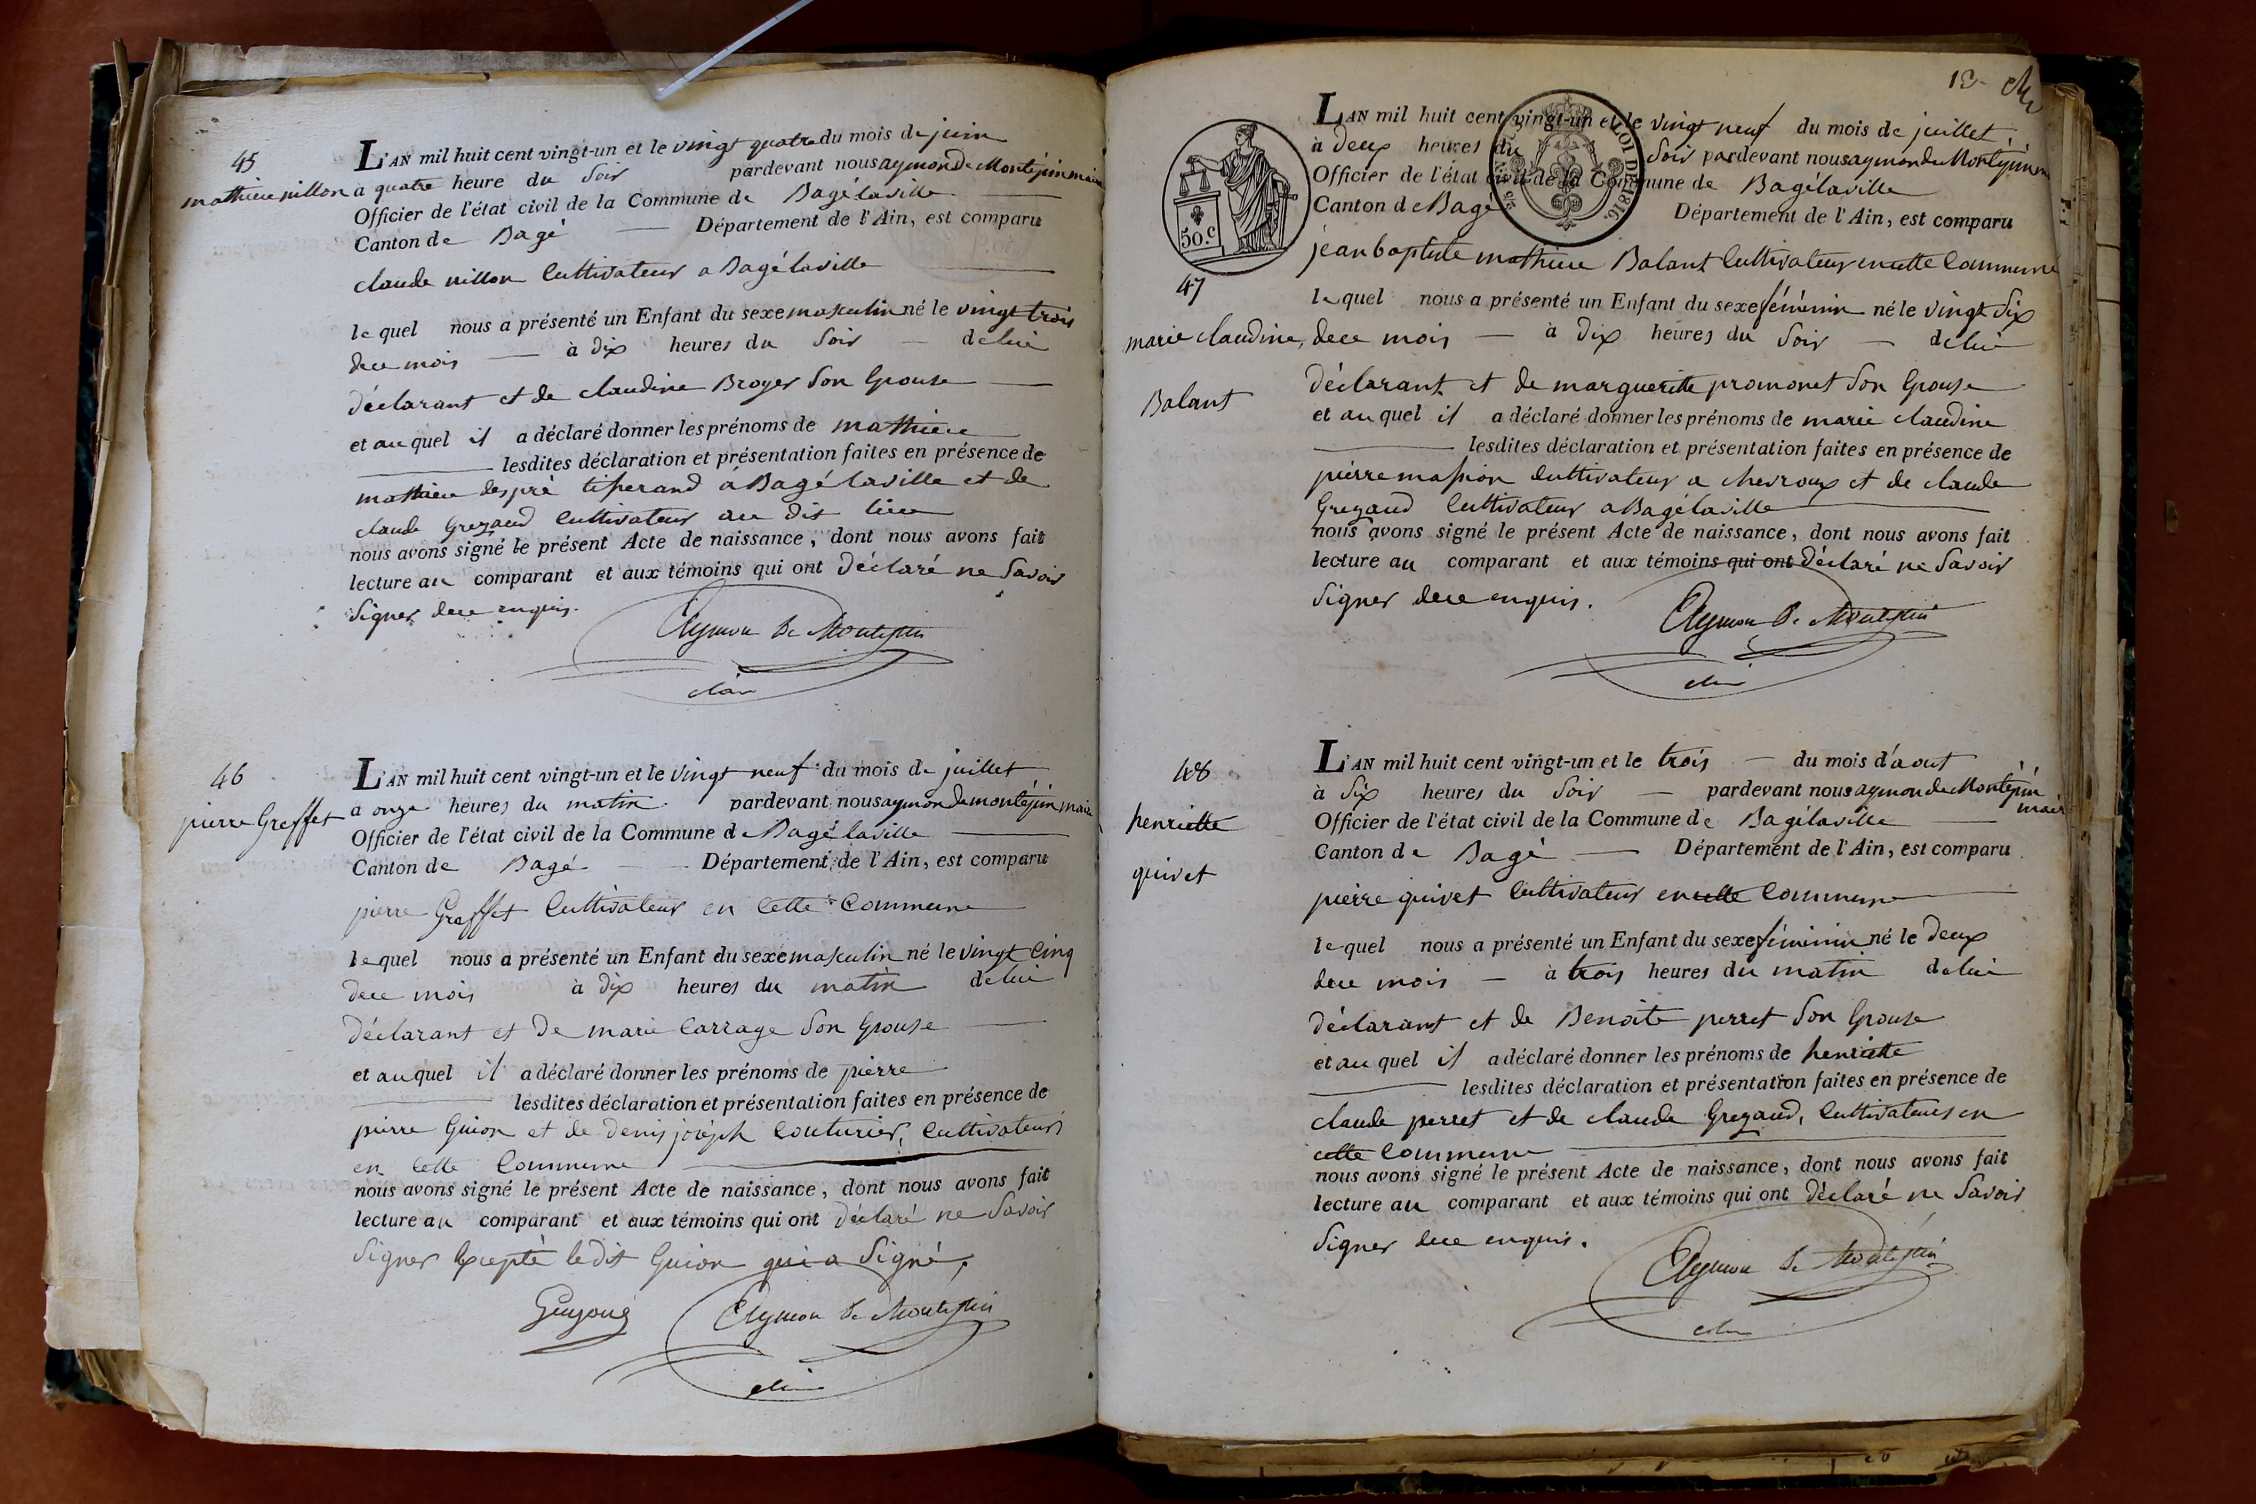 45
mathieu nillon
L'AN mil huit cent vingt-un et le vingt quatre du mois de juin
a quatre heure du Soir pardevant nous aymon de Montépin maire
Officier de l'état civil de la Commune de Bagélaville
Canton de Bagé Département de l'Ain, est comparu
claude nillon Cultivateur a Bagélaville
lequel nous a présenté un Enfant du sexe masculin né le vingt trois
dece mois à dix heures du Soir delui
déclarant et de claudine Broyer Son Epouse
et auquel il a déclaré donner les prénoms de mathieu
lesdites déclaration et présentation faites en présence de
mathieu despré tisserand á Bagé laville et de
claude Grezaud Cultivateur au dit lieu
nous avons signé le présent Acte de naissance, dont nous avons fait
lecture au comparant et aux témoins qui ont déclaré ne Savoir
Signer dece enquis.
Aymon de Montepin
46
pierre Greffet
L'AN mil huit cent vingt-un et le vingt neuf du mois de juillet
a onze heures du matin pardevant nous aymon de montépin maire
Officier de l'état civil de la Commune de Bagé laville
Canton de Bagé Département de l'Ain, est comparu
pierre Greffet Cultivateur en Cette Commune
lequel nous a présenté un Enfant du sexe masculin né le vingt Cinq
dece mois à dix heures du matin delui
déclarant et de marie Carrage Son Epouse
et auquel il a déclaré donner les prénoms de pierre
lesdites déclaration et présentation faites en présence de
pierre Guion et de denis joséph Couturier, Cultivateurs
en Cette Commune
nous avons signé le présent Acte de naissance, dont nous avons fait
lecture au comparant et aux témoins qui ont déclaré ne Savoir
Signer Excepté ledit Guion qui a Signé.
Guyon
Aymon de Montepin
13
50.c
LOI DE 1816.
47
marie claudine
Balant
L'AN mil huit cent vingt-un et le vingt neuf du mois de juillet
à deux heures du Soir pardevant nous aymon de Montépin
Officier de l'état civil de la Commune de Bagélaville
Canton de Bagé Département de l'Ain, est comparu
jean baptiste mathieu Balant Cultivateur encette Commune
lequel nous a présenté un Enfant du sexe féminin né le vingt Six
dece mois à dix heures du Soir delui
déclarant et de margueritte promonet Son Epouse
et auquel il a déclaré donner les prénoms de marie claudine
lesdites déclaration et présentation faites en présence de
pierre massion Cultivateur a chevroux et de claude
Grezaud Cultivateur a Bagélaville
nous avons signé le présent Acte de naissance, dont nous avons fait
lecture au comparant et aux témoins qui ont déclaré ne Savoir
Signer dece enquis.
Aymon de Montepin
48
henriette
quivet
L'AN mil huit cent vingt-un et le trois du mois d'aout
à Six heures du Soir pardevant nous aymon de Montépin
maire
Officier de l'état civil de la Commune de Bagélaville
Canton de Bagé Département de l'Ain, est comparu
pierre quivet Cultivateur encette Commune
lequel nous a présenté un Enfant du sexe féminin né le deux
dece mois à trois heures du matin delui
déclarant et de Benoite perret Son Epouse
et auquel il a déclaré donner les prénoms de henriette
lesdites déclaration et présentation faites en présence de
claude perret et de claude Grezaud, Cultivateurs en
cette Commune
nous avons signé le présent Acte de naissance, dont nous avons fait
lecture au comparant et aux témoins qui ont déclaré ne Savoir
Signer dece enquis.
Aymon de Montepin